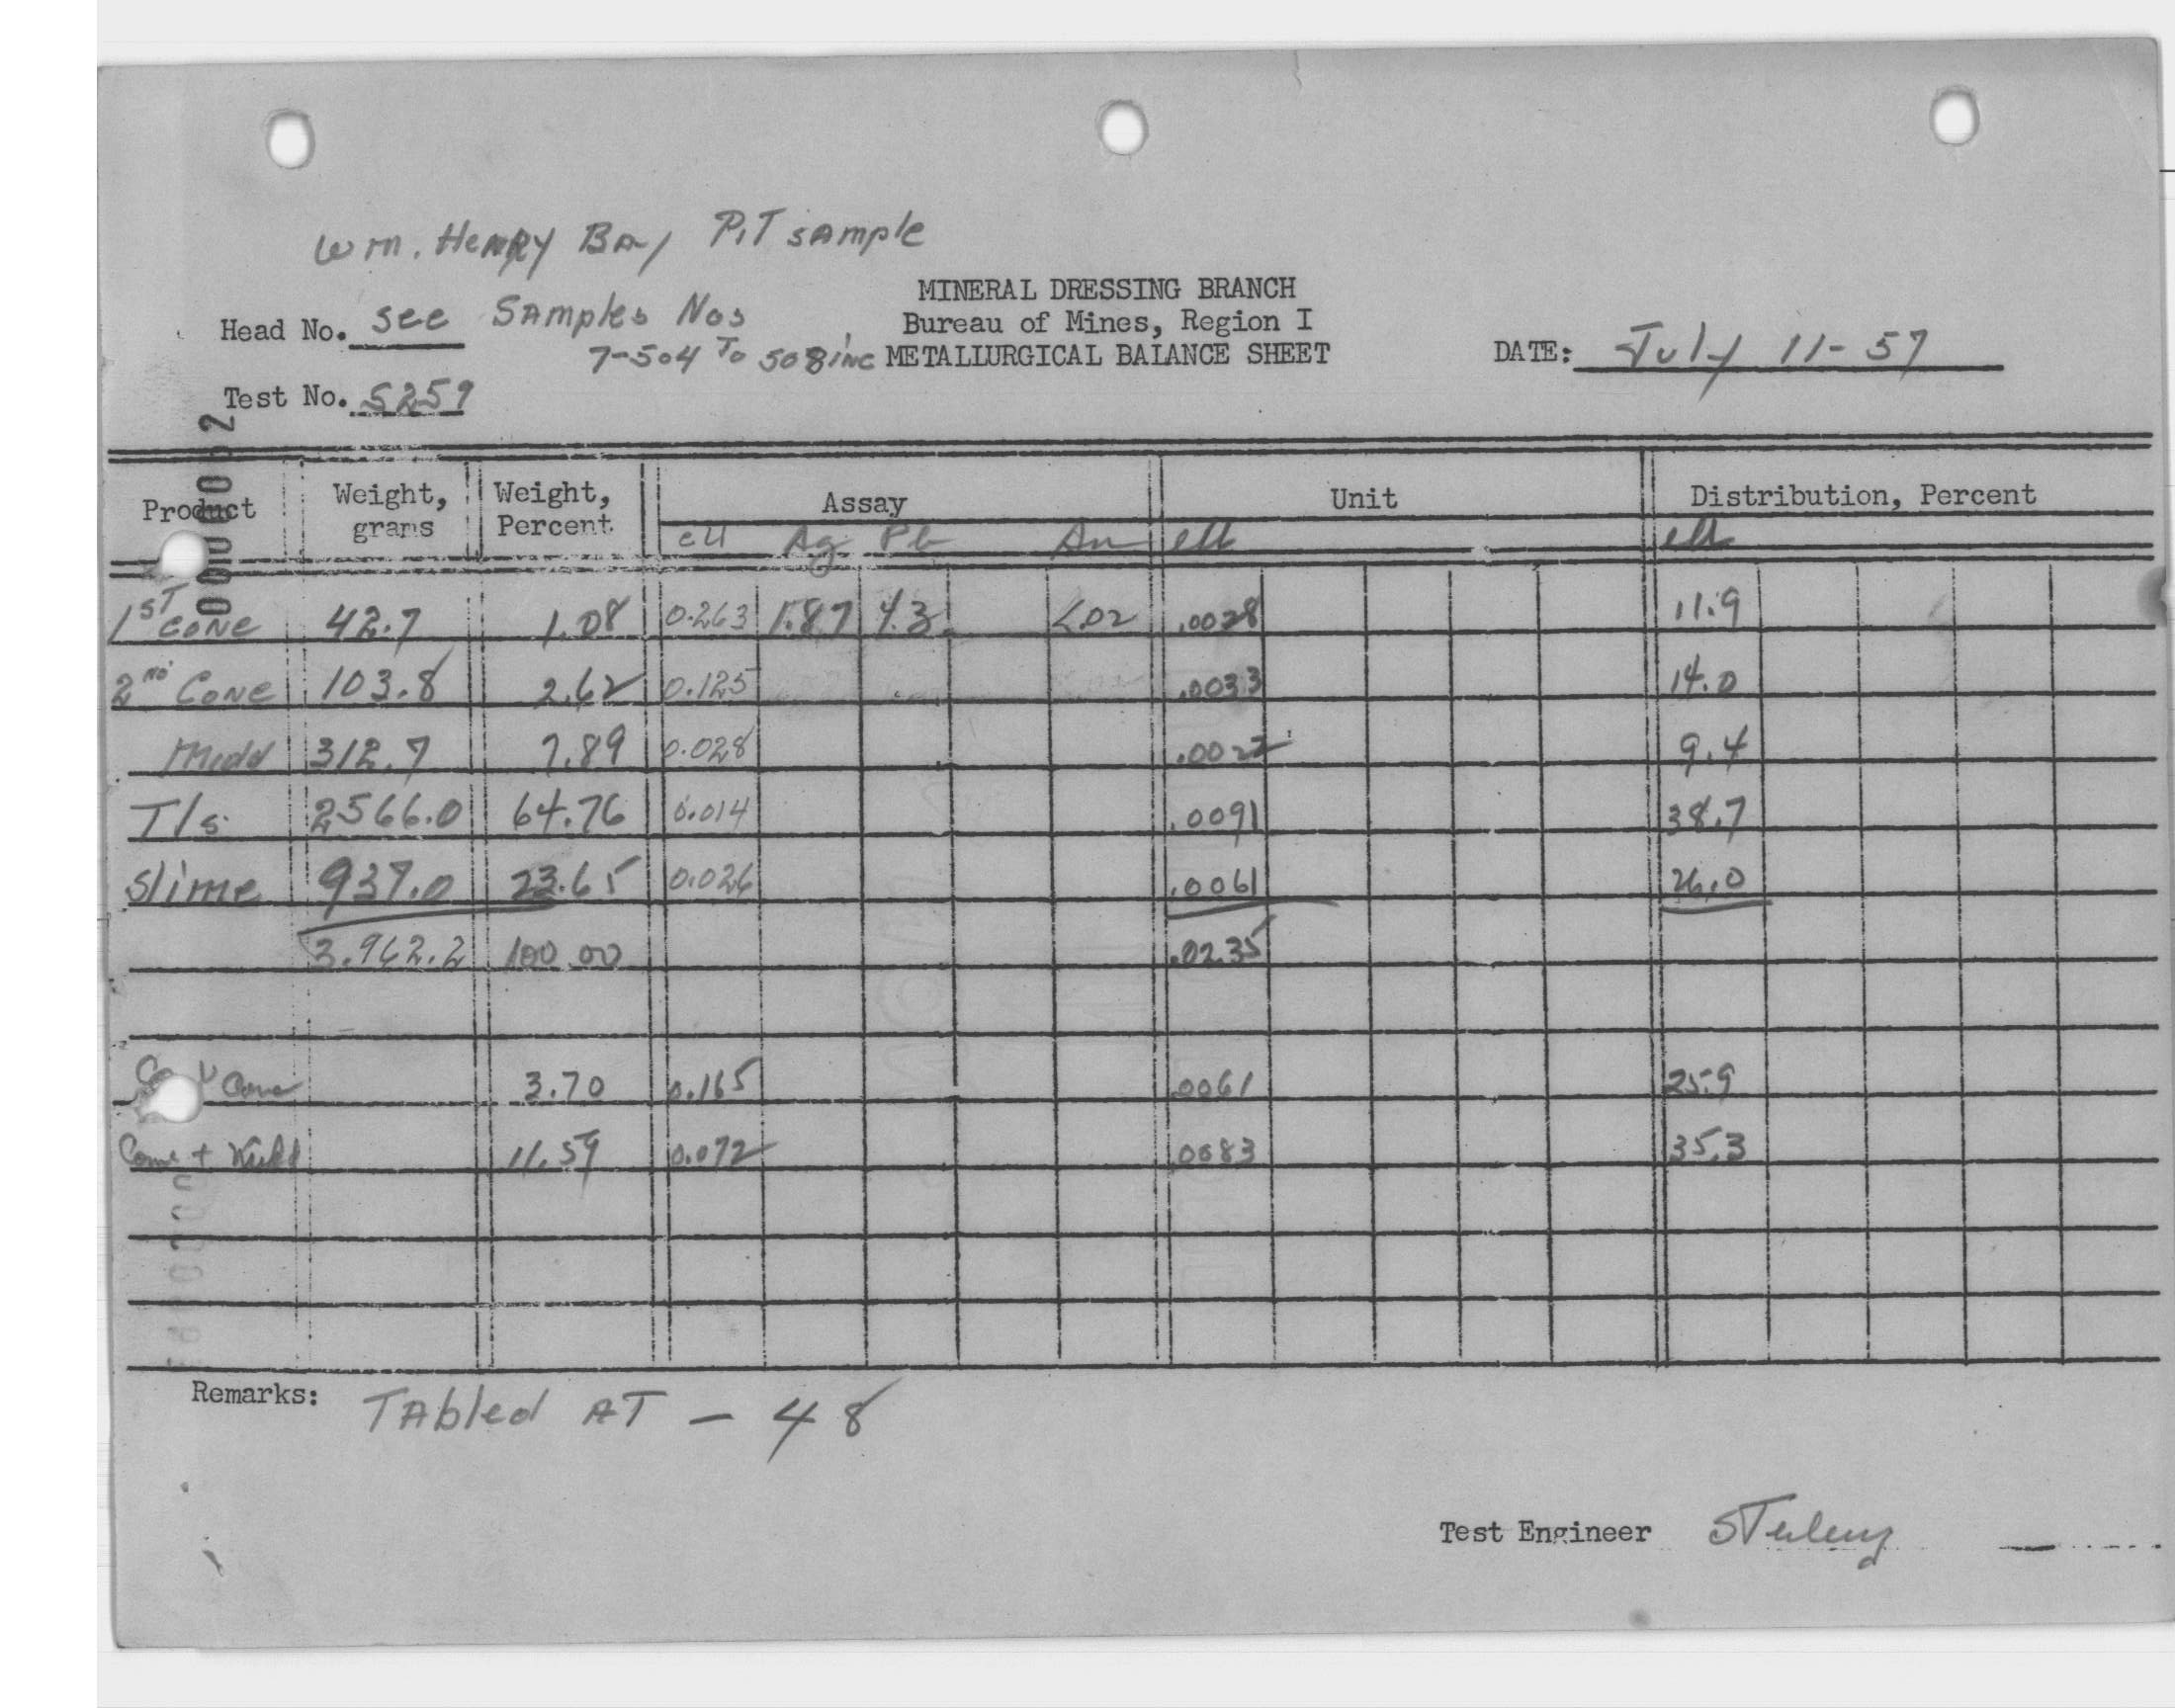 Wm. Henry Bay Pit sample
MINERAL DRESSING BRANCH
Head No. see Samples Nos Bureau of Mines, Region I
7-504 To 508 inc METALLURGICAL BALANCE SHEET DATE: July 11-57
Test No. 5259
Product Weight, grams Weight, Percent Assay Unit Distribution, Percent
eU Ag Pb Au eU eU
1st Conc 42.7 1.08 0.263 1.87 4.3 <.02 .0028 11.9
2nd Conc 103.8 2.62 0.125 .0033 14.0
Midd 312.7 7.89 0.028 .0022 9.4
T/s 2566.0 64.76 0.014 .0091 38.7
Slime 937.0 23.65 0.026 .0061 26.0
3.962.2 100.00 .0235
Conc 3.70 0.165 .0061 25.9
Conc + Midd 11.59 0.072 .0083 35.3
Remarks: Tabled AT - 48
Test Engineer